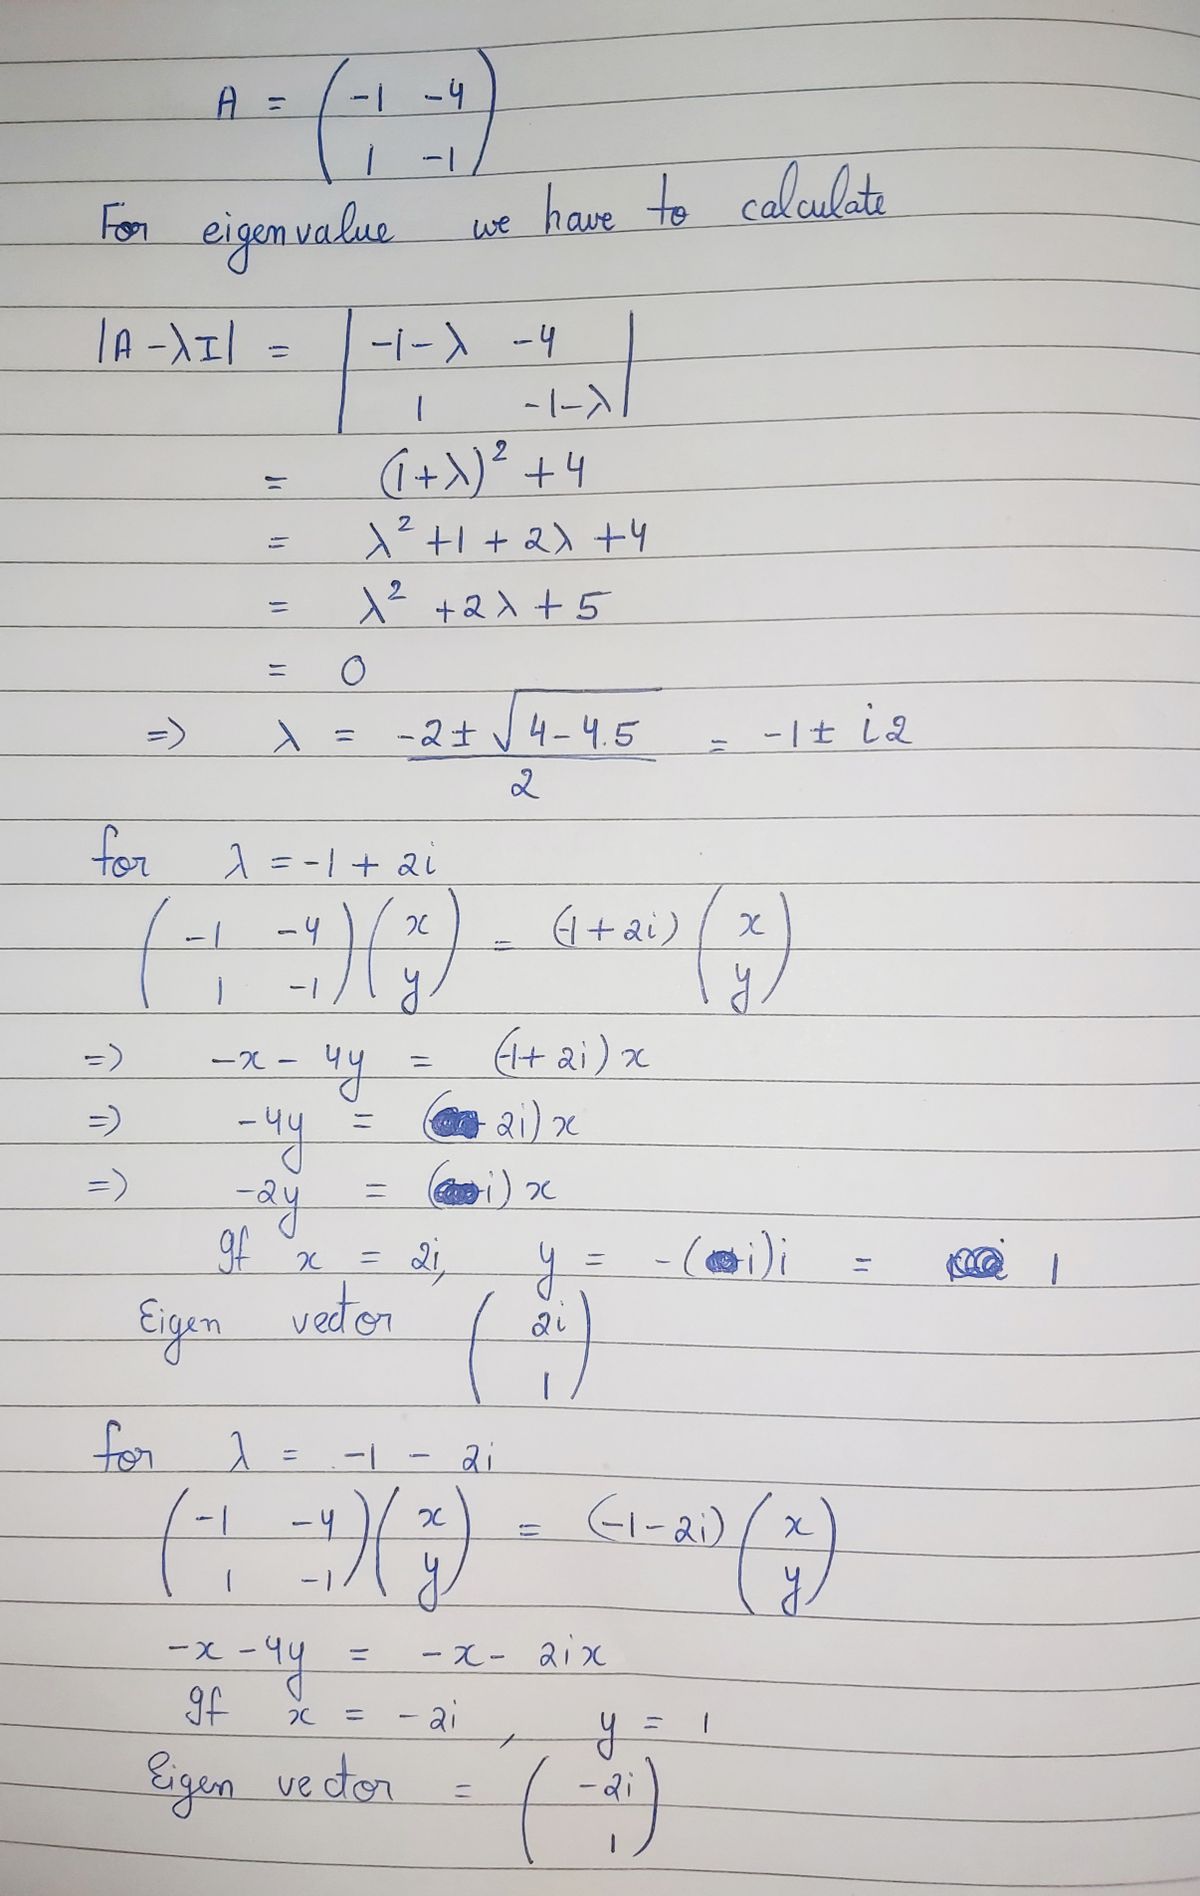 A = ( -1 -4
1 -1 )
For eigenvalue we have to calculate
|A-λI| = | -1-λ -4
1 -1-λ |
= (1+λ)² + 4
= λ² +1 + 2λ +4
= λ² +2λ + 5
= 0
=> λ = -2 ± √4-4.5 / 2 = -1 ± i2
for λ = -1 + 2i
( -1 -4
1 -1 ) ( x
y ) = (-1+2i) ( x
y )
=> -x - 4y = (-1+2i) x
=> -4y = ( 2i) x
=> -2y = ( i) x
If x = 2i, y = -( i)i = 1
Eigen vector ( 2i
1 )
for λ = -1 - 2i
( -1 -4
1 -1 ) ( x
y ) = (-1-2i) ( x
y )
-x -4y = -x - 2ix
If x = -2i , y = 1
Eigen vector = ( -2i
1 )